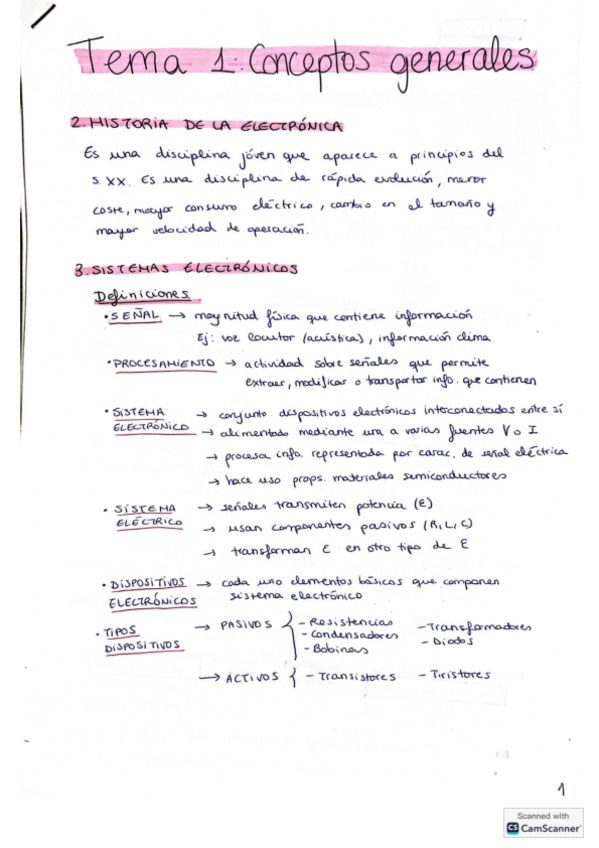 Tema 1: Conceptos generales
2. HISTORIA DE LA ELECTRÓNICA
Es una disciplina jóven que aparece a principios del
s. XX. Es una disciplina de rápida evolución, menor
coste, mayor consumo eléctrico, cambio en el tamaño y
mayor velocidad de operación.
3. SISTEMAS ELECTRÓNICOS
Definiciones
• SEÑAL → magnitud física que contiene información
Ej: voz locutor (acústica), información clima
• PROCESAMIENTO → actividad sobre señales que permite
extraer, modificar o transportar info. que contienen
• SISTEMA ELECTRÓNICO → conjunto dispositivos electrónicos interconectados entre sí
→ alimentado mediante una a varias fuentes V o I
→ procesa info. representada por carac. de señal eléctrica
→ hace uso props. materiales semiconductores
• SISTEMA ELÉCTRICO → señales transmiten potencia (E)
→ usan componentes pasivos (R, L, C)
→ transforman E en otro tipo de E
• DISPOSITIVOS ELECTRÓNICOS → cada uno elementos básicos que componen
sistema electrónico
• TIPOS DISPOSITIVOS → PASIVOS { - Resistencias - Transformadores
- Condensadores - Diodos
- Bobinas
→ ACTIVOS { - Transistores - Tiristores
1
Scanned with
CS CamScanner